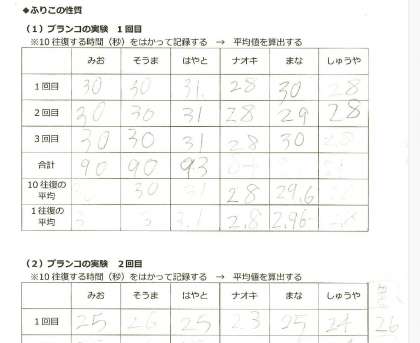 ◆ふりこの性質
(1)ブランコの実験 1回目
※10往復する時間(秒)をはかって記録する → 平均値を算出する
みお そうま はやと ナオキ まな しゅうや
1回目 30 30 31. 28 30 28
2回目 30 30 31 28 29 28
3回目 30 30 31 28 30
合計 90 90 93
10往復の
平均 30 31 28 29.6
1往復の
平均 3 3 3.1 2.8 2.96
(2)ブランコの実験 2回目
※10往復する時間(秒)をはかって記録する → 平均値を算出する
みお そうま はやと ナオキ まな しゅうや
1回目 25 26 25 23 25 24 26